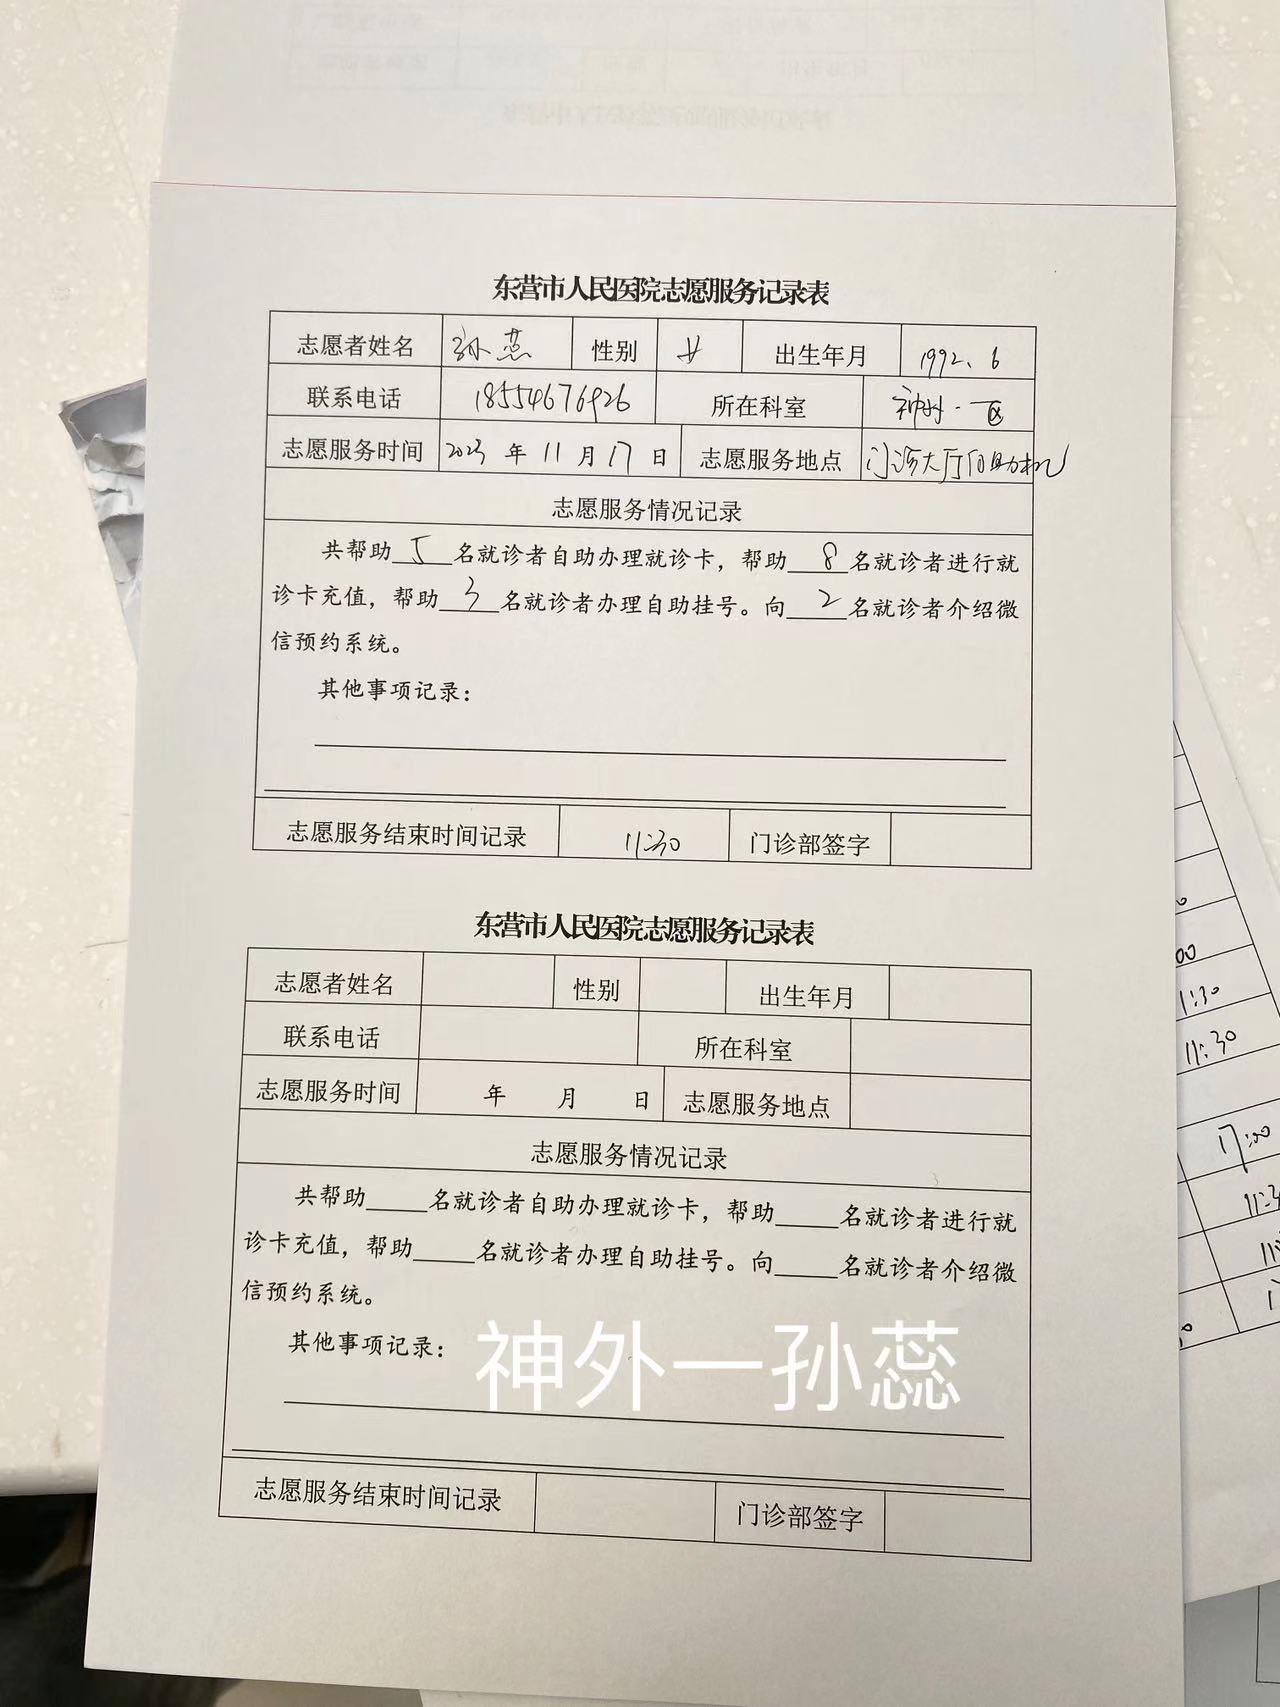 东营市人民医院志愿服务记录表
志愿者姓名 孙蕊 性别 女 出生年月 1992.6
联系电话 18554676926 所在科室 神外一区
志愿服务时间 2023 年 11 月 17 日 志愿服务地点 门诊大厅自助机
志愿服务情况记录
共帮助 5 名就诊者自助办理就诊卡，帮助 8 名就诊者进行就
诊卡充值，帮助 3 名就诊者办理自助挂号。向 2 名就诊者介绍微
信预约系统。
其他事项记录：
志愿服务结束时间记录 11:30 门诊部签字
东营市人民医院志愿服务记录表
志愿者姓名 性别 出生年月
联系电话 所在科室
志愿服务时间 年 月 日 志愿服务地点
志愿服务情况记录
共帮助_____名就诊者自助办理就诊卡，帮助_____名就诊者进行就
诊卡充值，帮助_____名就诊者办理自助挂号。向_____名就诊者介绍微
信预约系统。
其他事项记录：
神外一孙蕊
志愿服务结束时间记录 门诊部签字
11:30
11:30
17:00